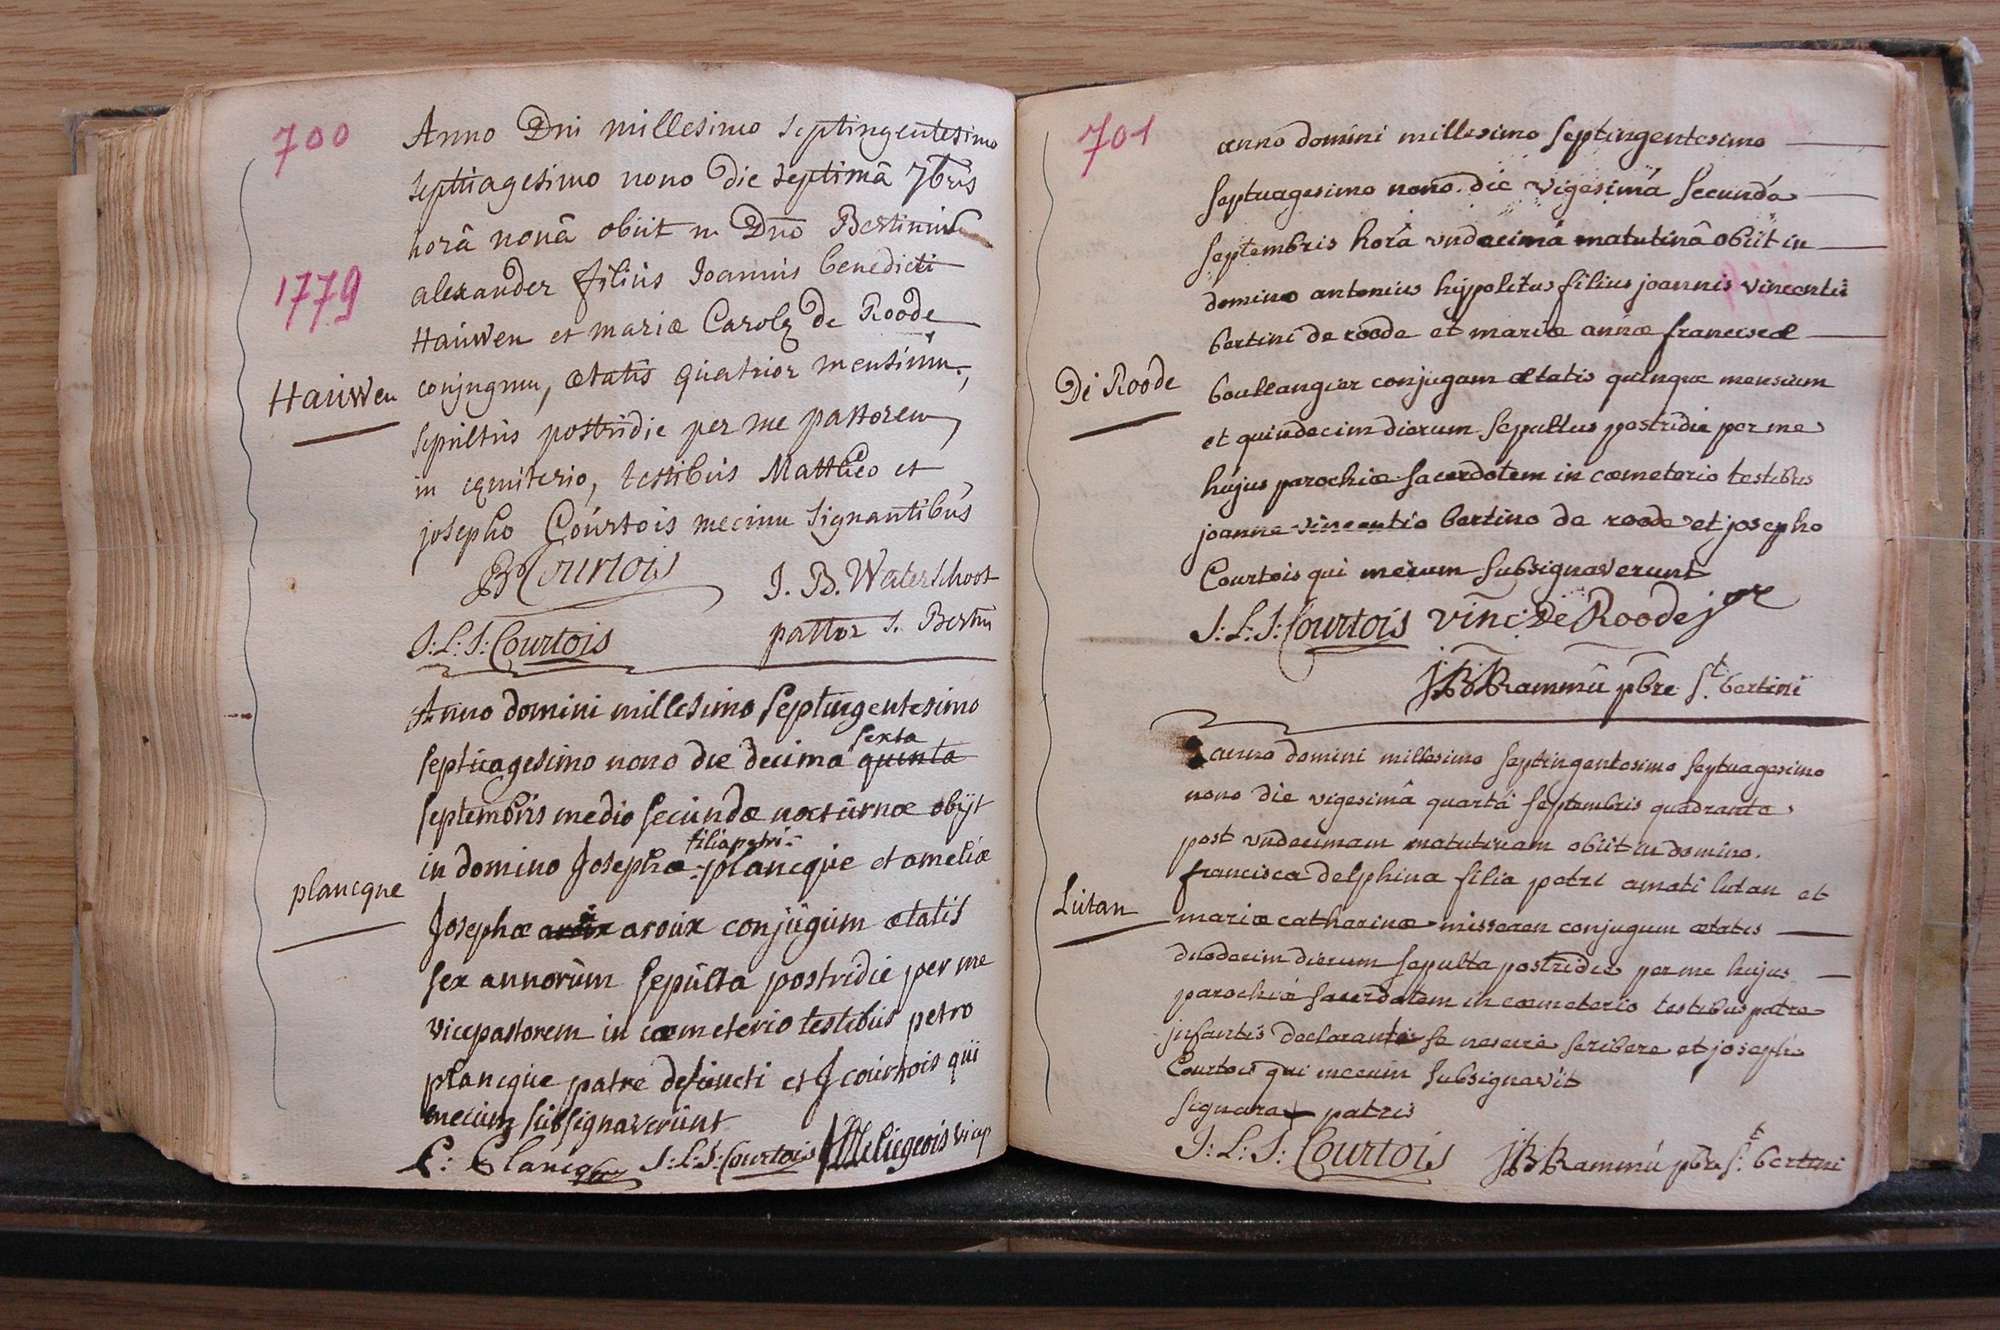 700
Anno Dni millesimo septingentesimo
septuagesimo nono die septimâ 7bris
horâ nonâ obiit in Dno Bertinus
alexander filius Joannis benedicti
1779
Haüwen et mariæ Carolæ de Roode
Haüwen
conjugum, ætatis quatuor mensium,
sepultus postridie per me pastorem
in cæmiterio, testibus Mattheo et
josepho Courtois mecum signantibus
Courtois
J. B. Waterschoot
J: L: J: Courtois
pastor S. Bertin
Anno domini millesimo septingentesimo
septuagesimo nono die decima quinta sexta
septembris medio secundæ nocturnæ obijt
in domino Josepha filia petri plancque et ameliæ
plancque
Josephæ aroux conjugum ætatis
sex annorum sepulta postridie per me
vicepastorem in cæmeterio testibus petro
plancque patre defuncti et J courtois qui
mecum subsignaverunt
P: Plancque J: L: J: Courtois Liegeois vicep
701
anno domini millesimo septingentesimo
septuagesimo nono die vigesimâ secundâ
septembris horâ undecimâ matutinâ obiit in
domino antonius hypolitus filius joannis vincentii
bertini de roode et mariæ annæ franciscæ
De Roode
boullangier conjugum ætatis quinque mensium
et quindecim dierum sepultus postridie per me
hujus parochiæ sacerdotem in cæmeterio testibus
joanne vincentio bertino de roode et josepho
Courtois qui mecum subsignaverunt
J: L: J: Courtois vinc: De Roode jor
JB Rammû pbre St. bertini
anno domini millesimo septingentesimo septuagesimo
nono die vigesimâ quartâ septembris quadrante
post undecimam matutinam obiit in domino
francisca delphina filia petri amati lutan et
Lutan
mariæ catharinæ misseren conjugum ætatis
duodecim dierum sepulta postridie per me hujus
parochiæ sacerdotem in cæmeterio testibus patre
infantis declarante se nescire scribere et joseph
Courtois qui mecum subsignavit
signum + patris
J: L: J: Courtois JB Rammû pbre St. bertini